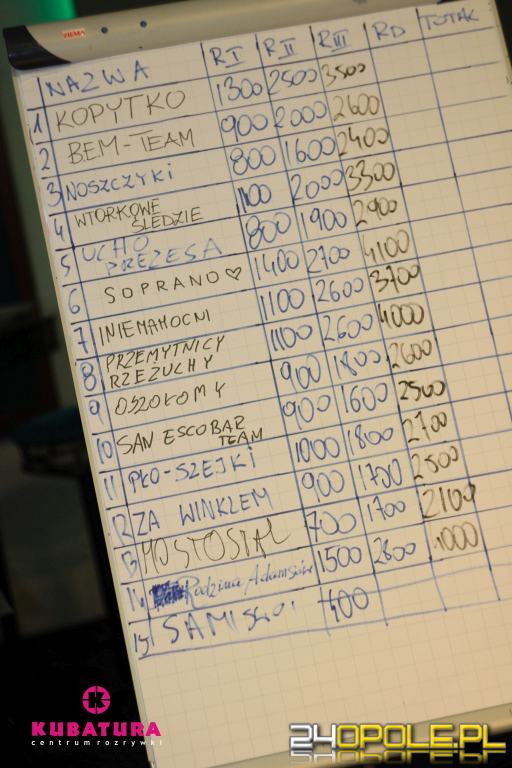 ZIEMIA
NAZWA R I R II R III RD TOTAL
1 KOPYTKO 1300 2500 3500
2 BEM-TEAM 900 2000 2600
3 NOSZCZYKI 800 1600 2400
4 WTORKOWE ŚLEDZIE 1100 2000 3300
5 UCHO PREZESA 800 1900 2900
6 SOPRANO♡ 1400 2700 4100
7 INIEMAMOCNI 1100 2600 3700
8 PRZEMYTNICY RZEŻUCHY 1100 2600 4000
9 OSZOŁOMY 900 1800 2600
10 SAN ESCOBAR TEAM 900 1600 2500
11 PŁO-SZEJKI 1000 1800 2700
12 ZA WINKLEM 900 1700 2500
13 MOSTOSTAL 700 1700 2100
14 Rodzina Adamsów 1500 2600
15 SAMI SWOI
KUBATURA
centrum rozrywki
24OPOLE.PL